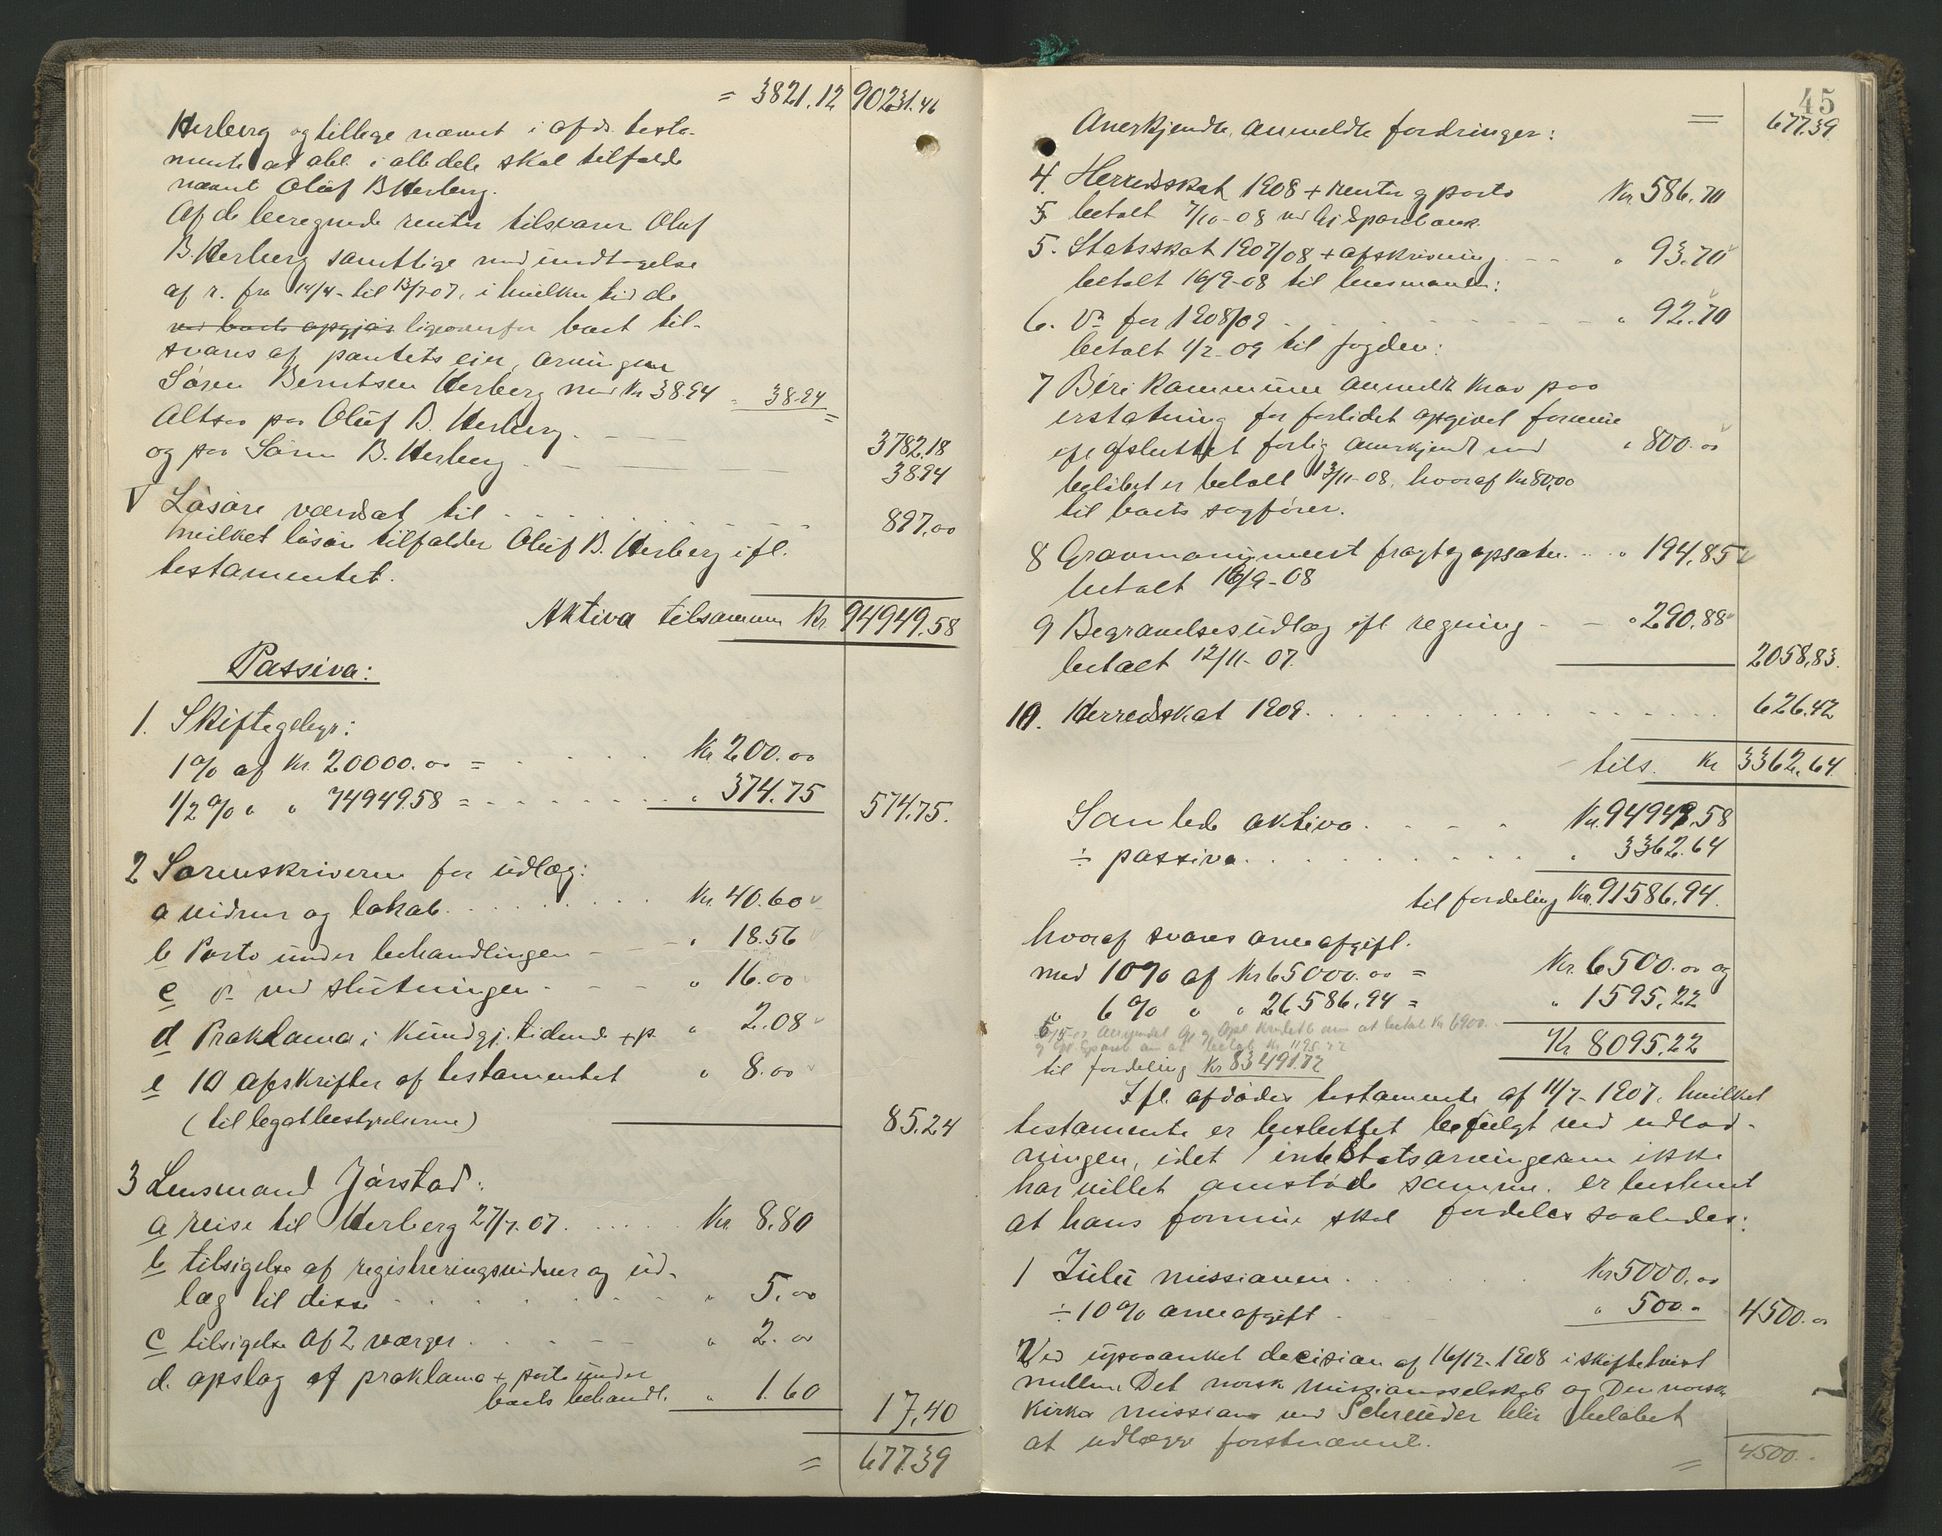 = 3821.12 90231.46
Herberg og tillige nævnt i afds. testa-
mente at abl. i alle dele skal tilfalde
nævnt Oluf B. Herberg.
Af de beregnede renter tilsvarer Oluf
B. Herberg samtlige med undtagelse
af r. fra 14/4 - til 13/7-07, i hvilken tid de
ved boets opgjør ligeoverfor boet til-
svares af pantets eier, arvingen
Søren Berntsen Herberg med Kr 38.94 " 38.94
Altsaa paa Oluf B. Herberg. 3782.18
og paa Søren B. Herberg 38.94
V Løsøre værdsat til 897.00
hvilket løsøre tilfalder Oluf B. Herberg ifl.
testamentet.
Aktiva tilsammen Kr. 94949.58
Passiva:
1. Skiftegebyr:
1% af Kr. 20000.00 = Kr 200.00
1/2% " " 74949.58 = " 374.75 574.75.
2 Sorenskriveren for udlæg:
a vidner og lokale Kr. 40.60
b Porto under behandlingen " 18.56
c do ved slutningen " 16.00
d Proklama i Kundgj. tidende + p. " 2.08
e 10 afskrifter af testamentet " 8.00
(til legatbestyrelserne) 85.24
3 Lensmand Jårstad:
a reise til Herberg 27/7-07. Kr 8.80
b tilsigelse af registreringsvidner og ud-
læg til disse " 5.00
c tilsigelse af 2 værger " 2.00
d. opslag af proklama + porto under
boets behandl. " 1.60 17.40
= 677.39
45
Anerkjendte, anmeldte fordringer: = 677.39
4. Herredsskat 1908 + renter og porto Kr. 586.70
betalt 7/10-08 ved Gj. Sparebank.
5. Statsskat 1907/08 + afskrivning " 93.70
betalt 16/9-08 til lensmanden:
6. Do for 1908/09 " 92.70
betalt 1/2-09 til fogden:
7 Biri kommune anmeldt krav paa
erstatning for forlidet opgivet formue
efr. afsluttet forlig anerkjendt med " 800.00
beløbet er betalt 13/11-08, hvoraf Kr 80,00
til boets sagfører.
8 Gravmonument fragt og opsatn. " 194,85
betalt 16/9-08
9 Begravelsesudlæg ifl regning " 290.88
betalt 12/11-07. 2058,83.
10. Herredsskat 1909. 626.42
tils. Kr 3362.64
Samlede aktiva Kr. 94949.58
÷ passiva " 3362.64
til fordeling Kr. 91586.94.
hvoraf svares arveafgift.
med 10% af Kr 65000.00 = Kr. 6500.00 og
" 6% " " 26586.94 = " 1595.22
Kr 8095.22
til fordeling Kr 83491.72
Ifl. afdødes testamente af 11/7-1907, hvilket
testamente er besluttet befulgt ved udlod-
ningen, idet intestatsarvingerne ikke
har villet anstøde samme, er bestemt
at hans formue skal fordeles saaledes:
1 Zulu missionen Kr 5000.00
÷ 10% arveafgift " 500.- 4500.00
Ved upaaanket decision af 16/12-1908 i skiftetvist
mellem Det norske missionsselskab og Den norske
kirkes mission ved Schreuder blir beløbet
at udlægge førstnævnte.
= 4500.-